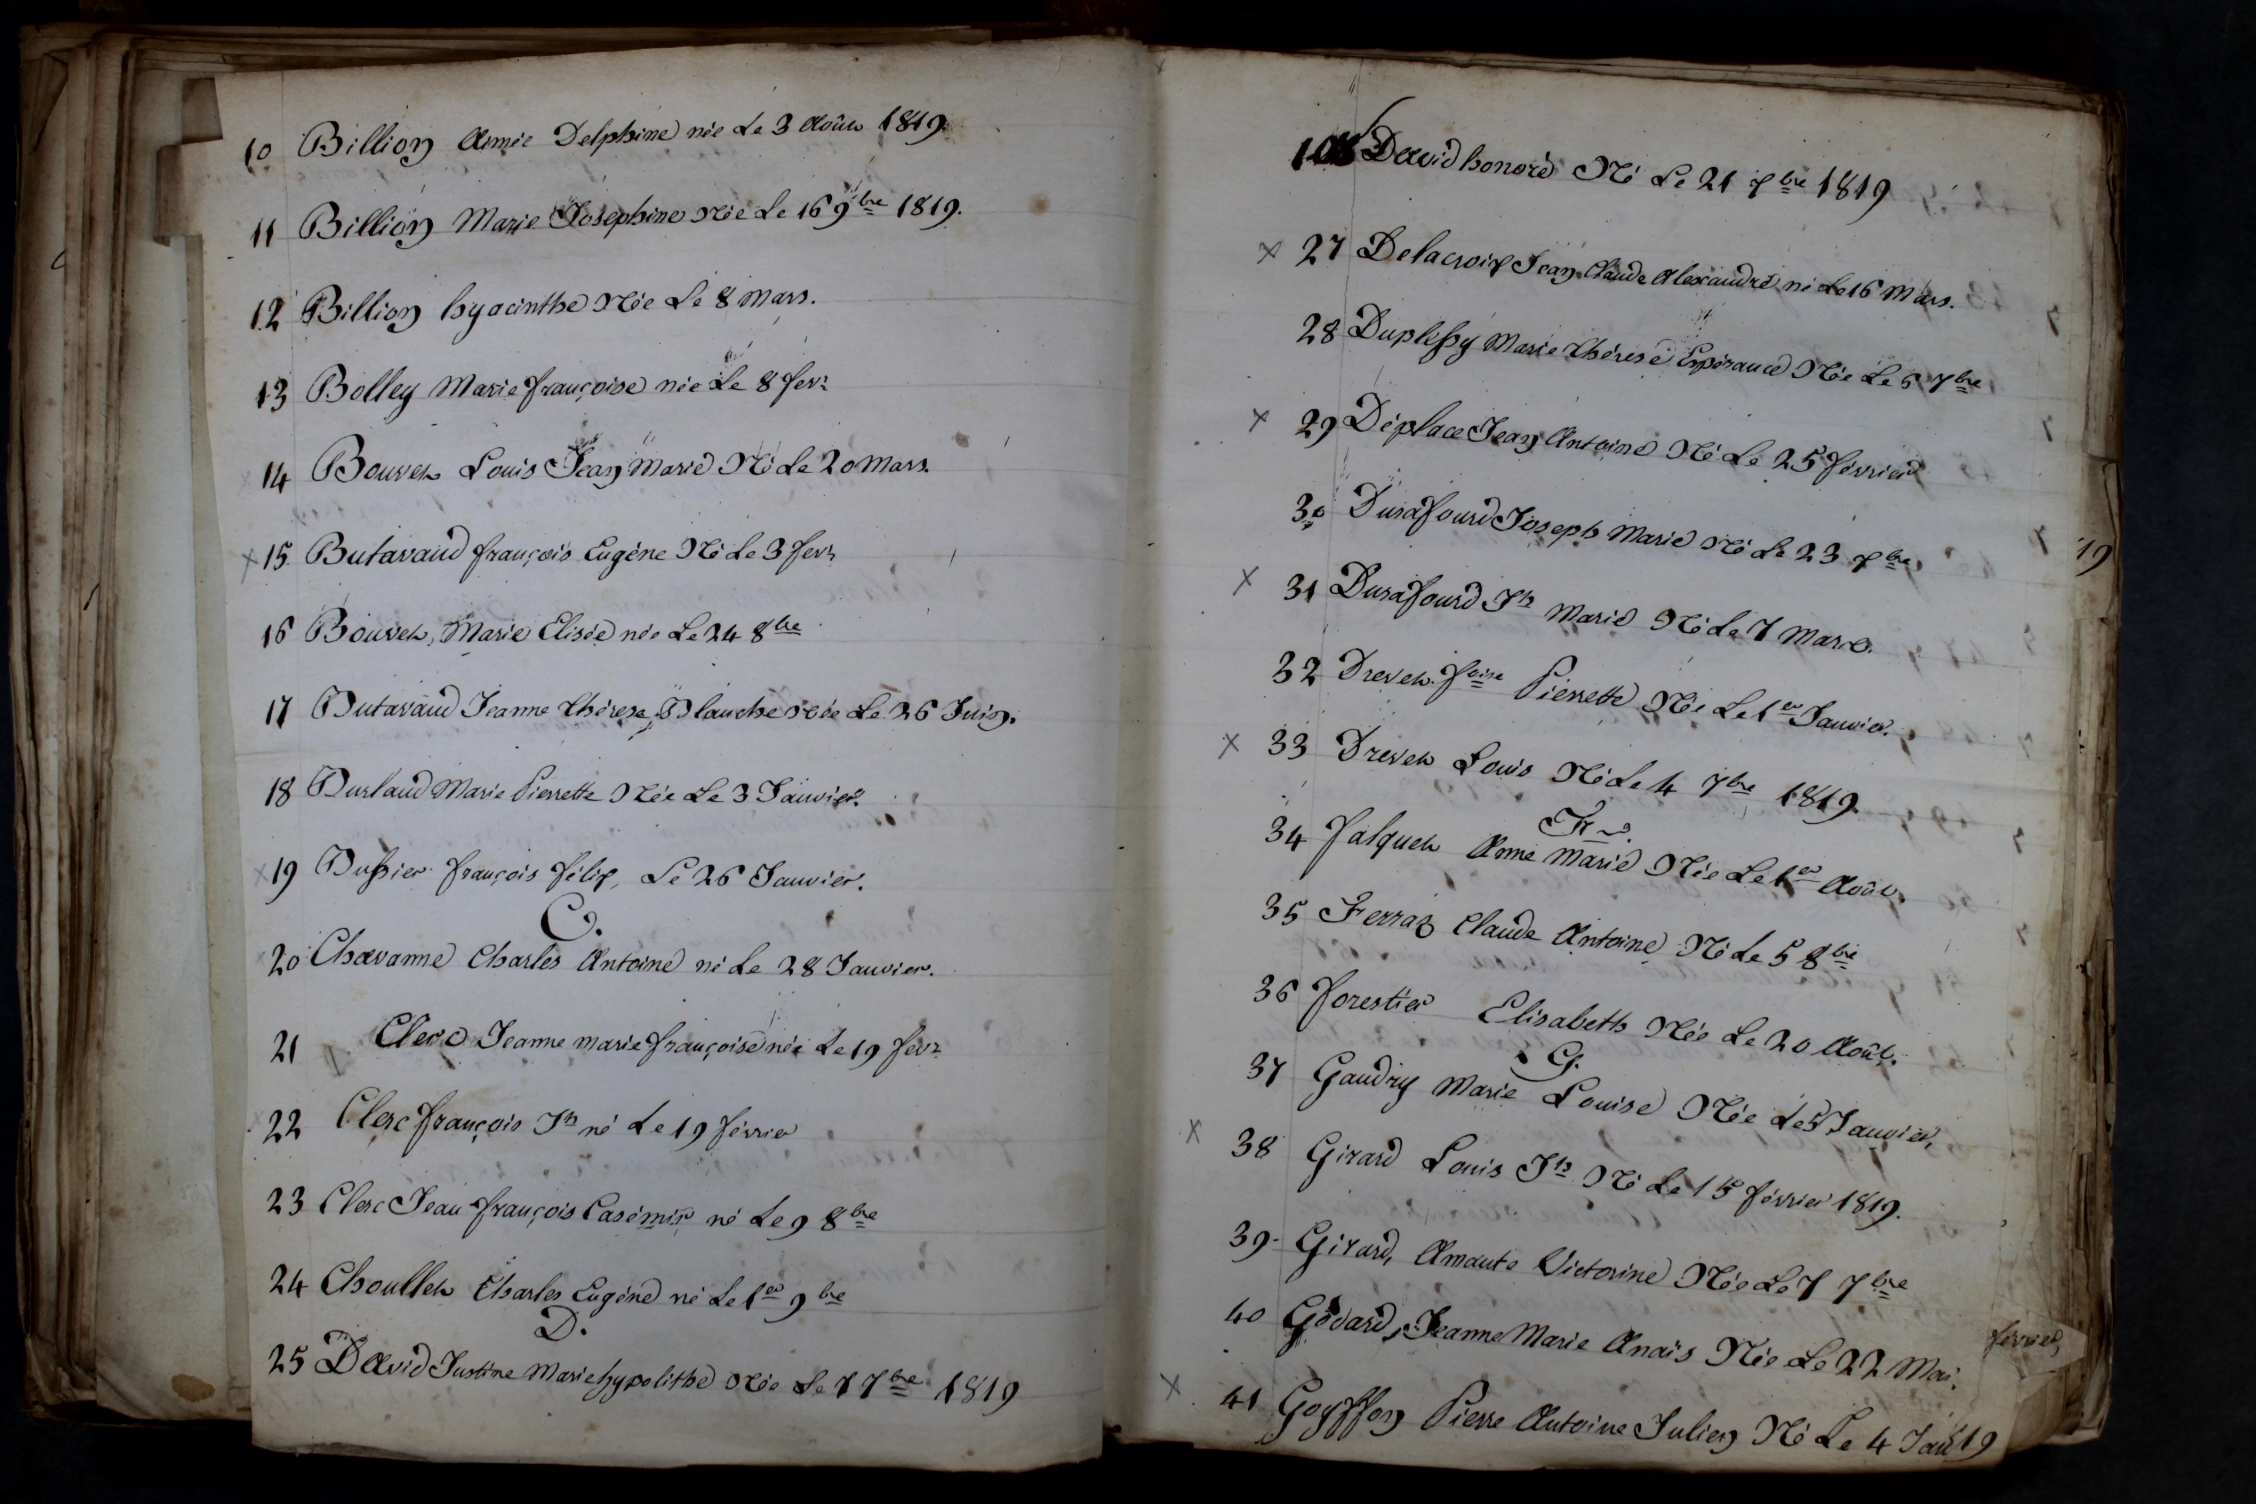 10 Billion Aimée Delphine née Le 3 Août 1819.
11 Billion Marie Josephine Née Le 16 9bre 1819.
12 Billion hyacinthe Née Le 8 Mars.
13 Bolley Marie françoise née Le 8 fevr
14 Bouvet Louis Jean Marie Né Le 20 Mars.
x 15 Butavand françois Eugène Né Le 3 fevr
16 Bouvet, Marie Elisée née Le 24 8bre
17 Butavand Jeanne thérese, Blanche Née Le 26 Juin.
18 Burlaud Marie Pierrette Née Le 3 Janvier.
x 19 Bussier françois félix, Le 26 Janvier.
C.
20 Chavanne Charles Antoine né Le 28 Janvier.
21 Clerc Jeanne marie françoise née Le 19 fevr
22 Clerc françois Jh né Le 19 février
23 Clerc Jean françois Casémir né Le 9 8bre
24 Choullet Charles Eugéne né Le 1er 9bre
D.
25 David Justine Marie hypolithe Née Le 1 7bre 1819
David honoré Né Le 21 Xbre 1819
x 27 Delacroix Jean Claude Alexandre né Le 16 Mars.
28 Duplessy Marie thérese Espérance Née Le 6 7bre
x 29 Déplace Jean Antoine Né Le 25 février
30 Durafourd Joseph Marie Né Le 23 Xbre
x 31 Durafourd Jh Marie Né Le 7 Mars.
32 Drevet foise Pierrette Née Le 1er Janvier.
x 33 Drevet Louis Né Le 4 7bre 1819.
F
34 falquet Anne Marie Née Le 1er Août.
35 Ferraz Claude Antoine Né Le 5 8bre
36 forestier Elisabeth Née Le 20 Août.
G.
37 Gaudry Marie Louise Née Le 5 Janvier,
x 38 Girard Louis Jh Né Le 15 février 1819.
39 Girard, Amante Victorine Née Le 7 7bre
40 Godard, Jeanne Marie Anaïs Née Le 22 Mai.
x 41 Goyffon Pierre Antoine Julien Né Le 4 Janv 19
19
février,